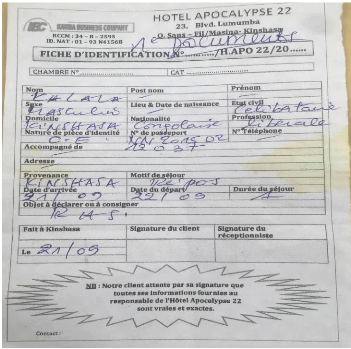 HOTEL APOCALYPSE 22
KAMBA BUSINESS COMPANY
23, Blvd. Lumumba
RCCM : 24 - B - 2595
Q. Sans - Fil/Masina- Kinshasa
ID. NAT : 01 - 93 N4156B
FICHE D'IDENTIFICATION N° /H.APO 22/20
CHAMBRE N° CAT
Nom Post nom Prénom
Sexe Lieu & Date de naissance Etat civil
Masculin Célibataire
Domicile Nationalité Profession
KINSHASA Congolaise Libérale
Nature de pièce d'identité N° de passeport N°Téléphone
Accompagné de
Adresse
Provenance Motif de séjour
KINSHASA Repos
Date d'arrivée Date du départ Durée du séjour
21/09 22/09 1
Objet à déclarer ou à consigner
R A S.
Fait à Kinshasa Signature du client Signature du réceptionniste
Le 21/09
NB : Notre client atteste par sa signature que
toutes ses informations fournies au
responsable de l'Hôtel Apocalypse 22
sont vraies et exactes.
Contact :